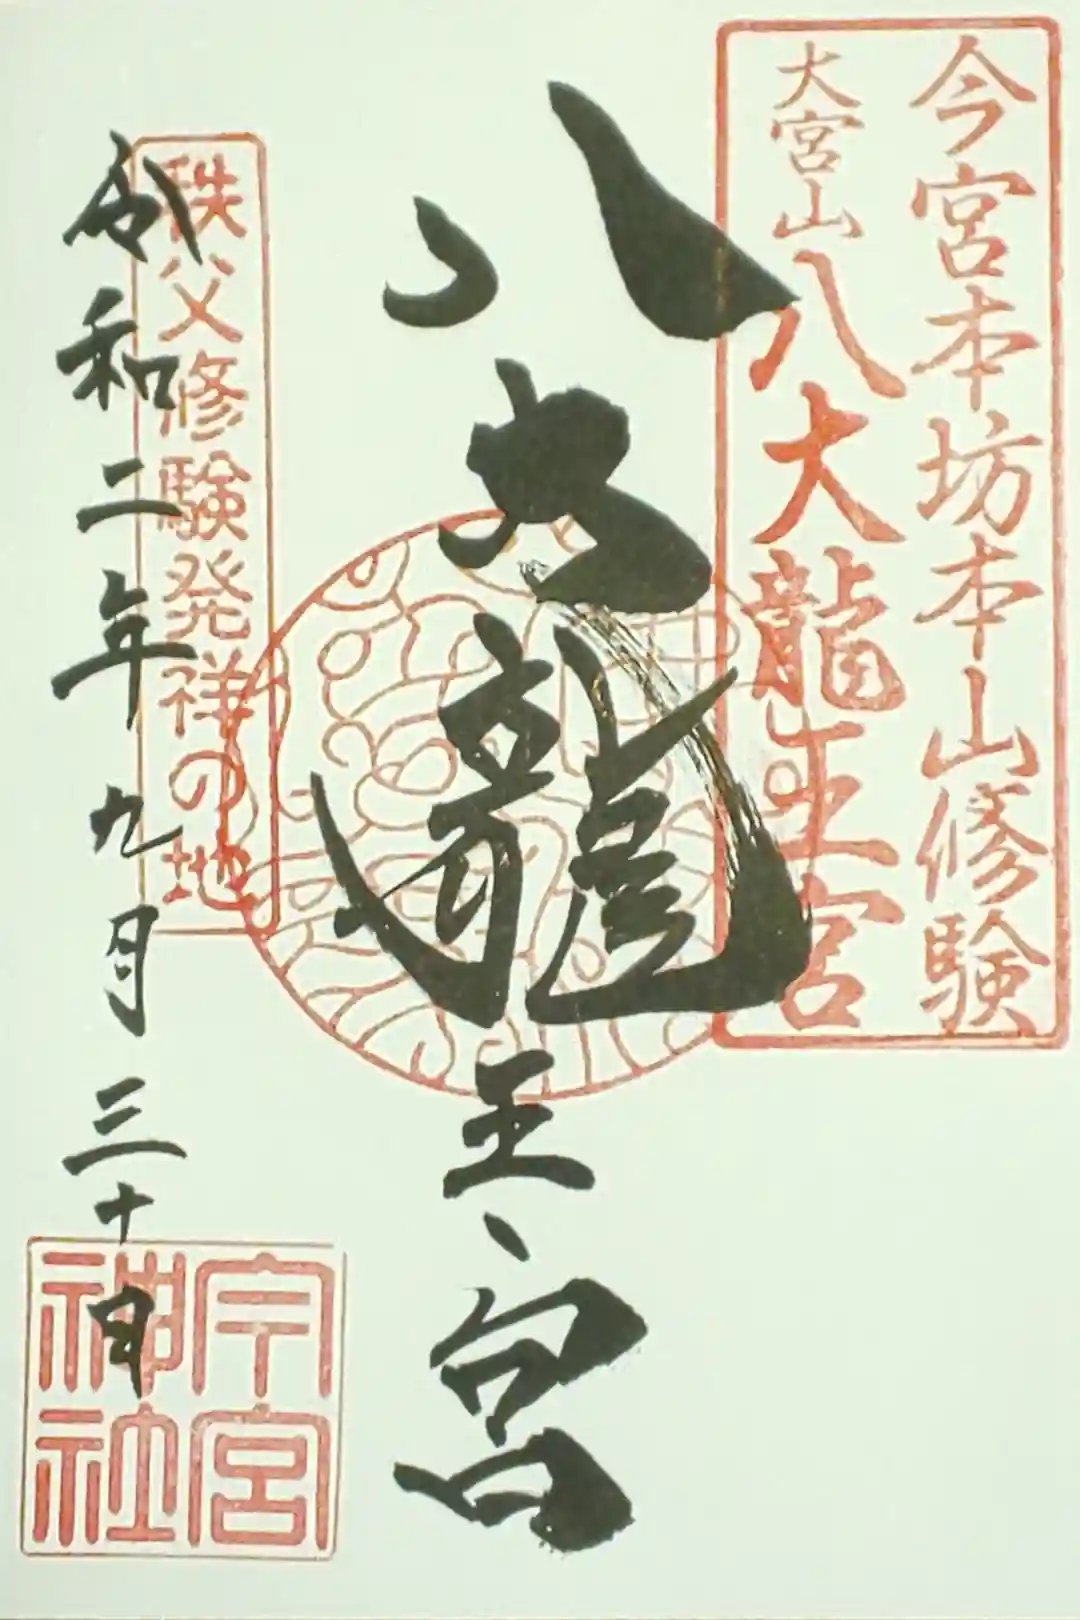 今宮本坊本山修験
大宮山八大龍王宮
八大龍王宮
秩父修験発祥の地
令和二年九月三十日
今宮
神社